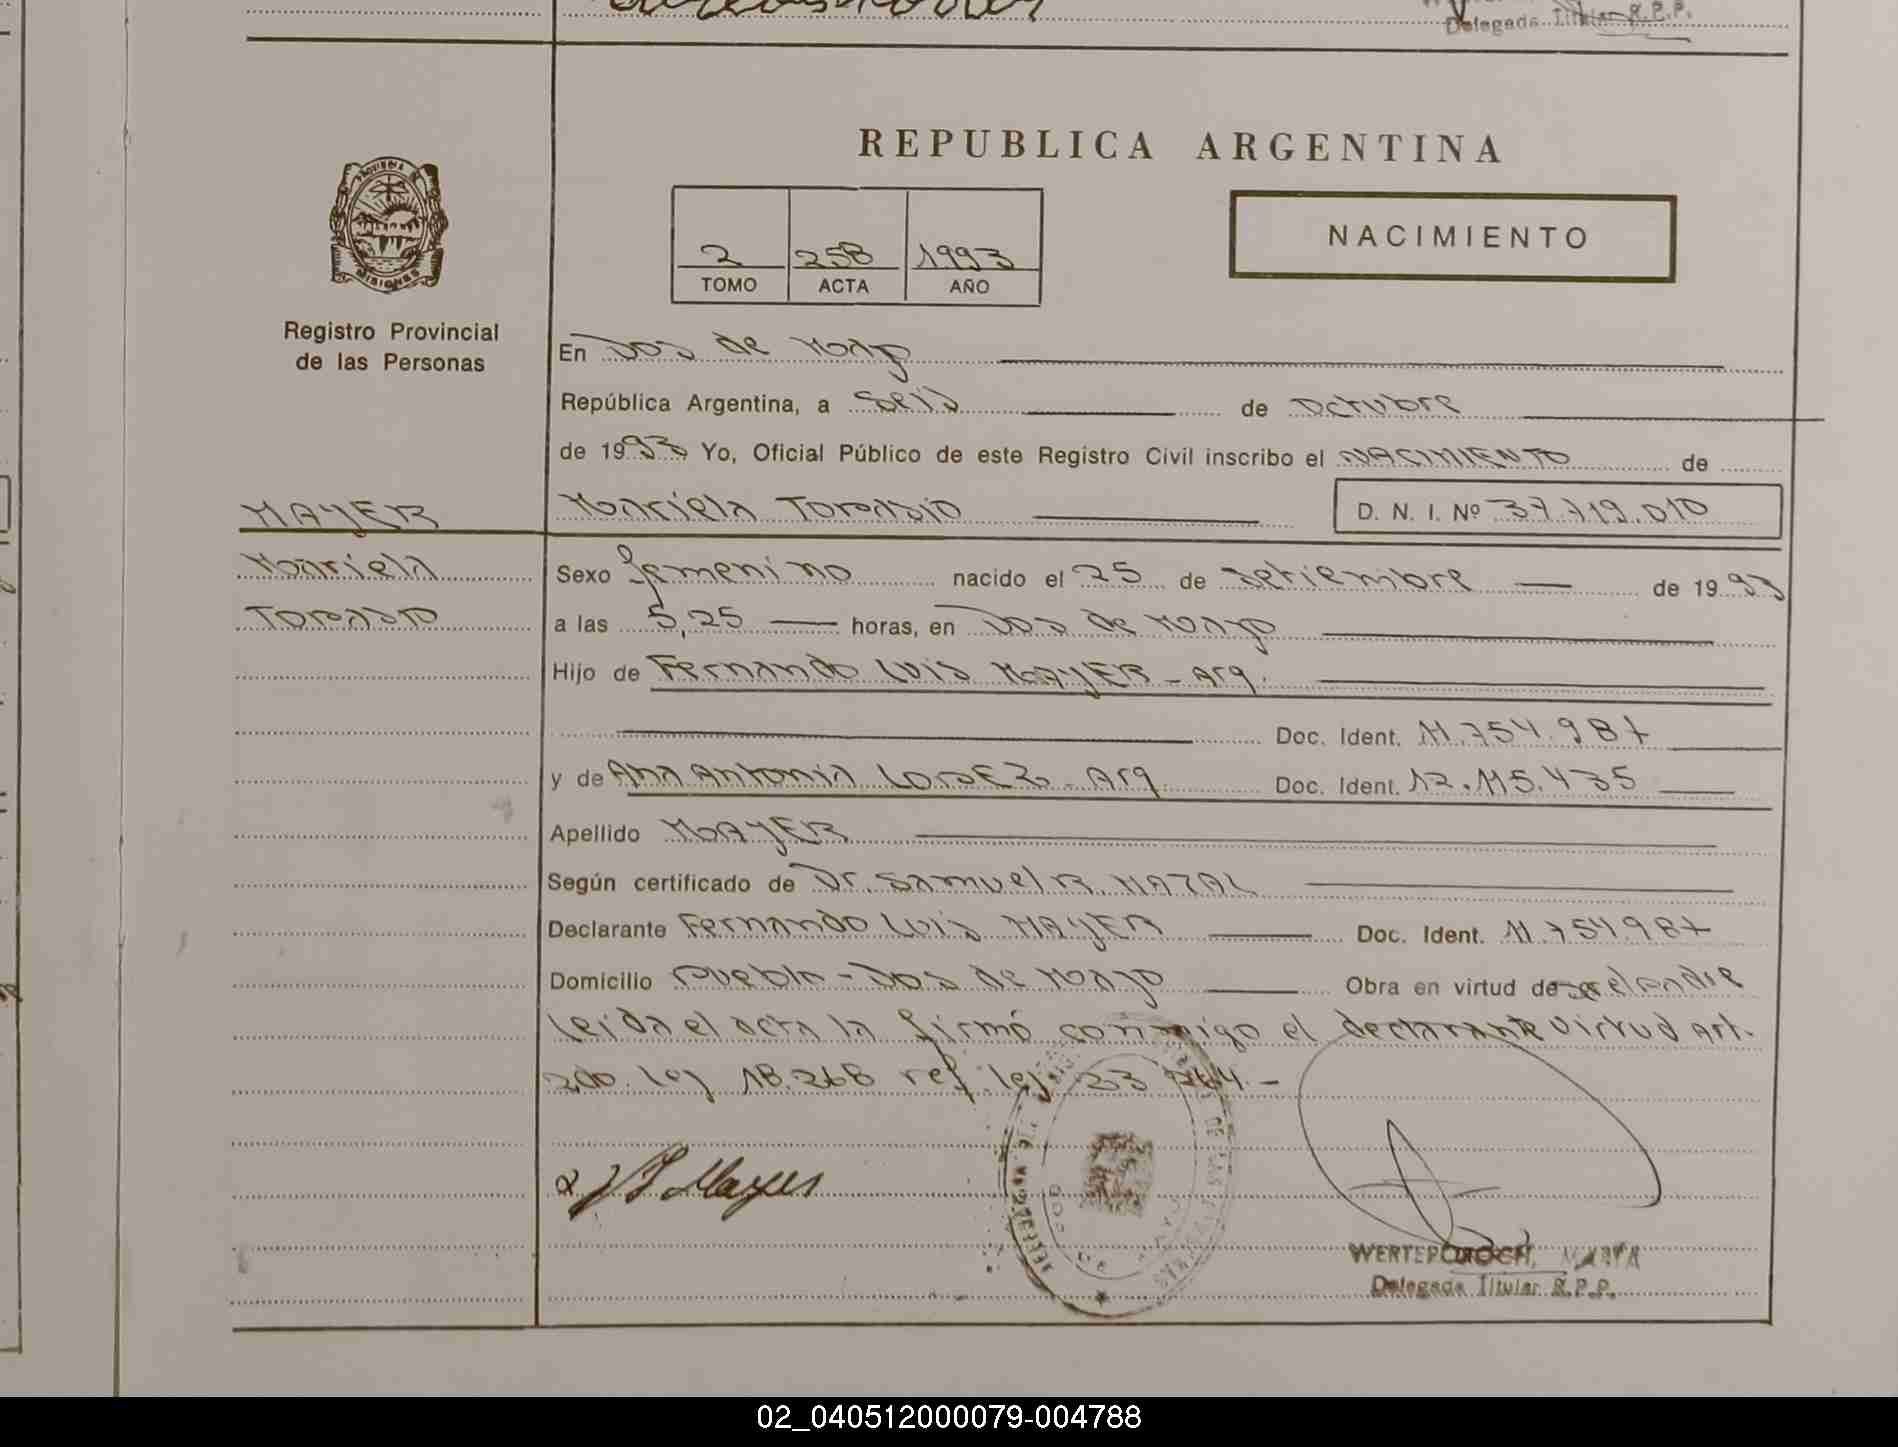 Delegada Titular R.P.P.
REPUBLICA ARGENTINA
PROVINCIA DE MISIONES
2 258 1993
TOMO ACTA AÑO
NACIMIENTO
Registro Provincial
de las Personas
En Dos de Mayo
República Argentina, a seis de octubre
de 1993 Yo, Oficial Público de este Registro Civil inscribo el NACIMIENTO de
MAYER Mariela D. N. I. Nº 37.719.010
Mariela
Sexo femenino nacido el 25 de setiembre de 1993
a las 5,25 horas, en Dos de Mayo
Hijo de Fernando Luis MAYER - Arg.
Doc. Ident. 11.754.987
y de Ana Antonia LOPEZ - Arg Doc. Ident. 12.115.435
Apellido MAYER
Según certificado de Dr. Samuel R.
Declarante Fernando Luis MAYER Doc. Ident. 11.754987
Domicilio Pueblo - Dos de Mayo Obra en virtud de ser el padre
leída el acta la firmó conmigo el declarante virtud Art.
200 ley 18.268 ref. ley 23 264.-
Mayer
MARTA
Delegada Titular R.P.P.
02_040512000079-004788